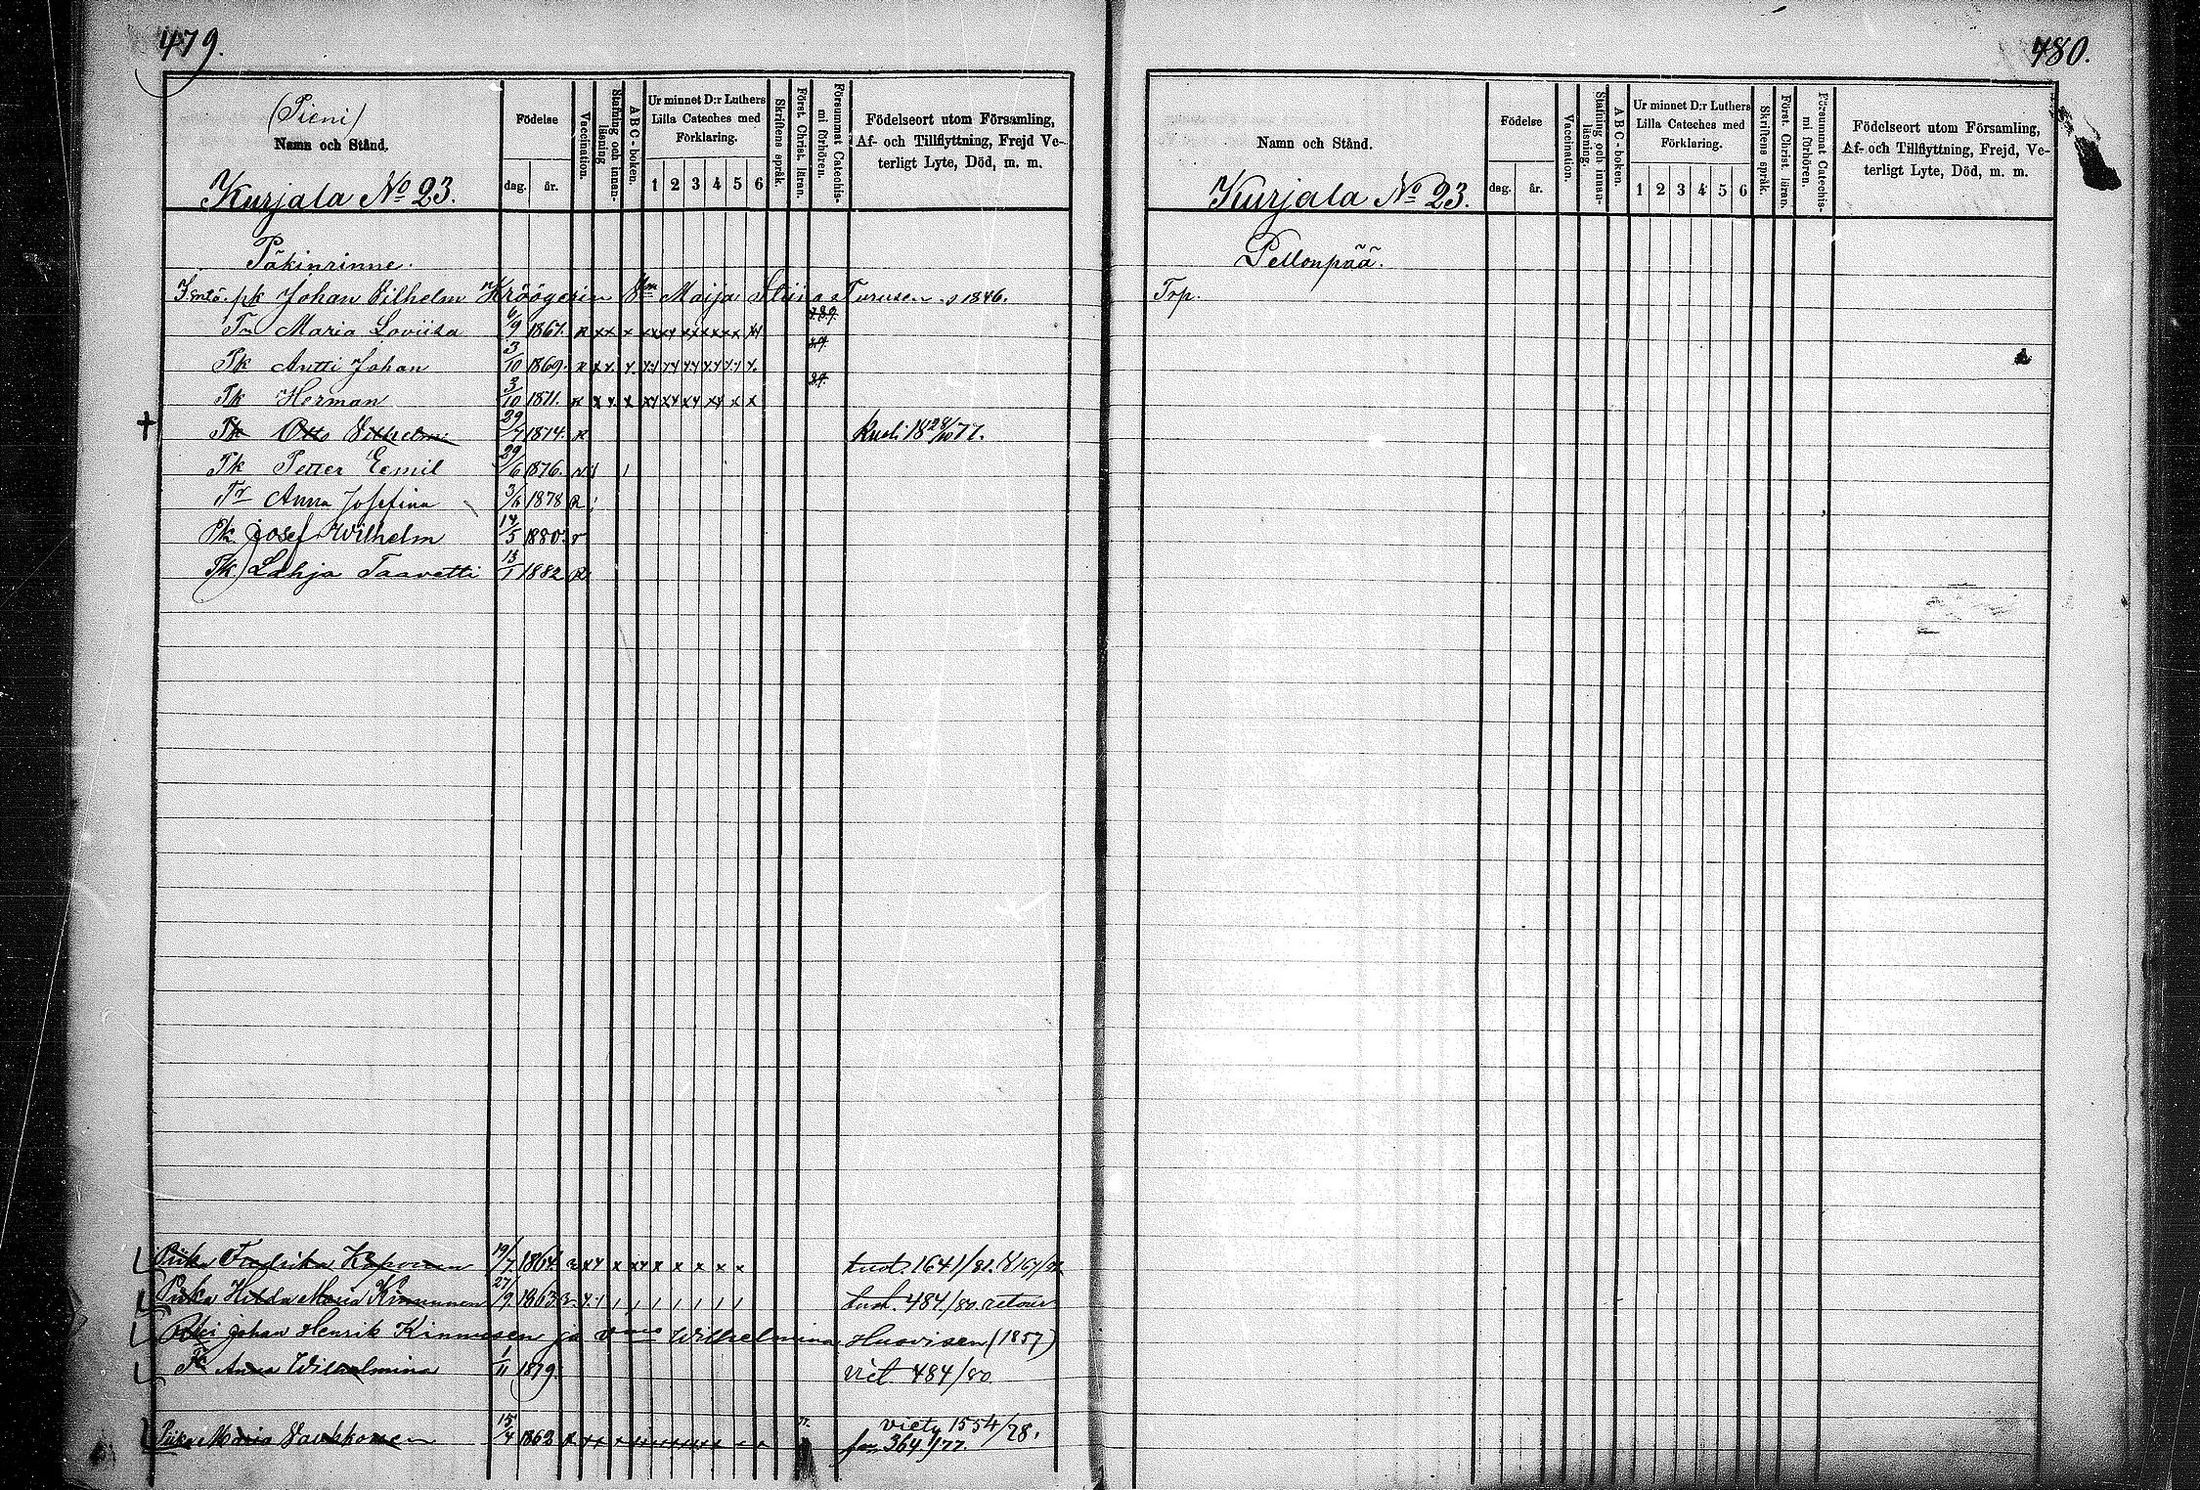 479.
(Pieni)
Namn och Stånd.
Kurjala No 23.
Födelse
dag.
år.
Vaccination.
Stafning och innan-
läsning
ABC-boken.
Ur minnet D:r Luthers
Lilla Cateches med
Förklaring.
1 2 3 4 5 6
Skriftens språk.
Först. Christ. läran.
Försummat Catechis-
mi förhören.
Födelseort utom Församling,
Af- och Tillflyttning, Frejd Ve-
terligt Lyte, Död, m. m.
Päkinrinne.
Johan Vilhelm Kröögerin Vm Maija Stiina Turusen s 1846.
Tr Maria Loviisa 6/9 1867.
Tk Antti Johan 3/10 1869.
Tk Herman 3/10 1871.
Tk Otto Vilhelmi 29/7 1874. R kuoli 18 28/10 77.
Tk Petter Eemil 29/6 1876.
Tr Anna Josefina 3/6 1878 R
Pk Josef Wilhelm 14/5 1880. r
Tk Lahja Taavetti 13/1 1882 R
Piika Fredrika Kaponen 19/7 1864.
Piika Hilda Maria Kinnunen 27/9 1863 484/80. retour
Johan Henrik Kinnusen ja vmo Wilhelmina Huovisen (1857)
Tr Anna Wilhelmina 1/11 1879. 484/80.
Piika Maria 15/4 1862 viety 1554/78.
364/77.
480.
Namn och Stånd.
Kurjala No 23.
Födelse
dag.
år.
Vaccination.
Stafning och innan-
läsning.
ABC-boken.
Ur minnet D:r Luthers
Lilla Cateches med
Förklaring.
1 2 3 4 5 6
Skriftens språk.
Först. Christ. läran.
Försummat Catechis-
mi förhören.
Födelseort utom Församling,
Af- och Tillflyttning, Frejd, Ve-
terligt Lyte, Död, m. m.
Pellonpää.
Trp.